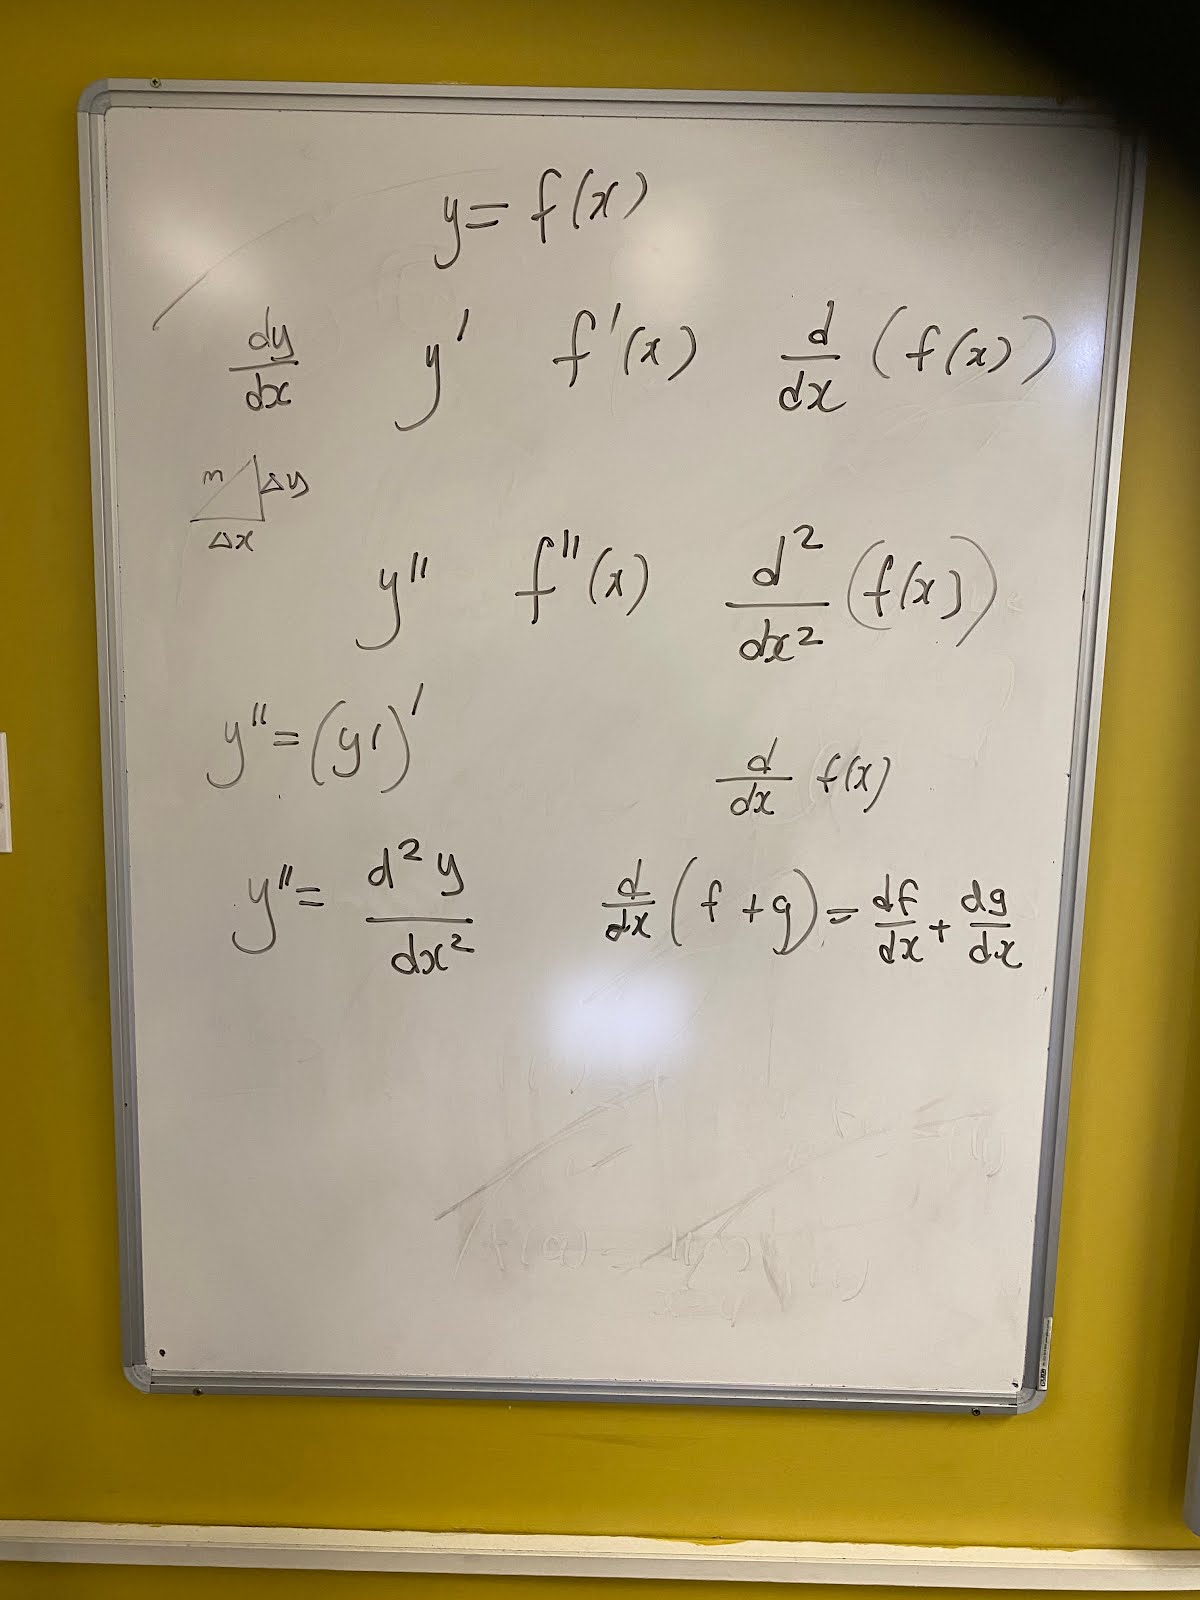 y = f(x)
dy/dx y' f'(x) d/dx (f(x))
m Δy
Δx
y'' f''(x) d²/dx² (f(x))
y'' = (y')'
d/dx f(x)
y'' = d²y/dx² d/dx (f + g) = df/dx + dg/dx